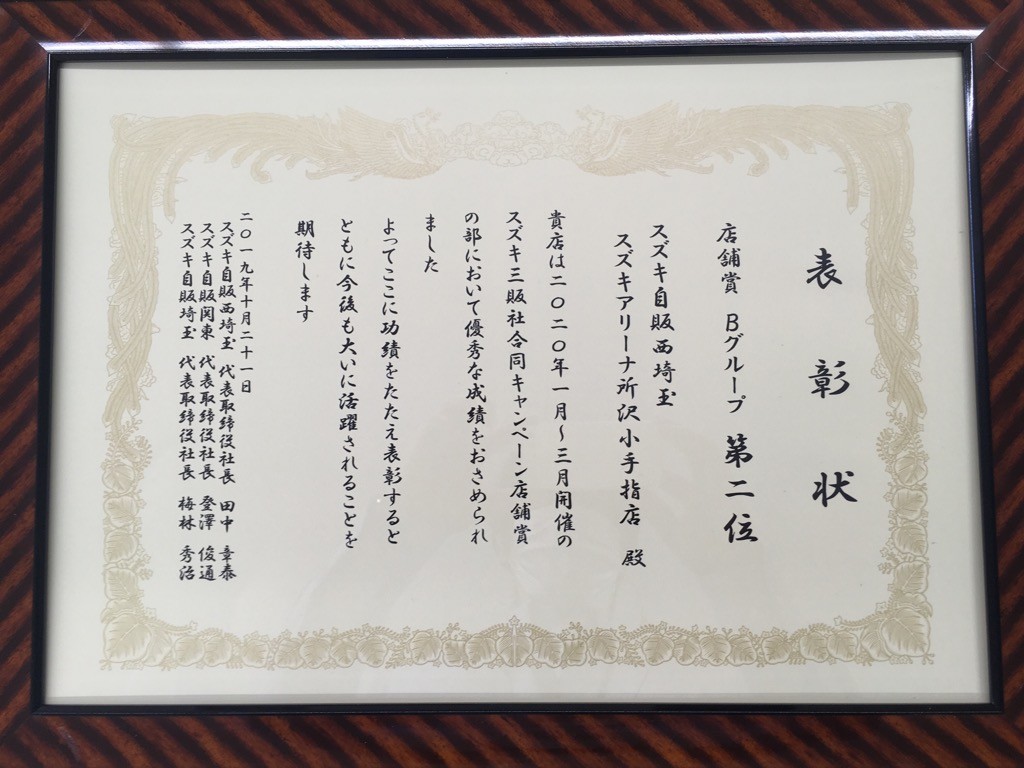 表彰状
店舗賞 Bグループ 第二位
スズキ自販西埼玉
スズキアリーナ所沢小手指店 殿
貴店は二〇二〇年一月～三月開催の
スズキ三販社合同キャンペーン店舗賞
の部において優秀な成績をおさめられ
ました
よってここに功績をたたえ表彰すると
ともに今後も大いに活躍されることを
期待します
二〇一九年十月二十一日
スズキ自販西埼玉 代表取締役社長 田中 章泰
スズキ自販関東 代表取締役社長 登澤 俊通
スズキ自販埼玉 代表取締役社長 梅林 秀治